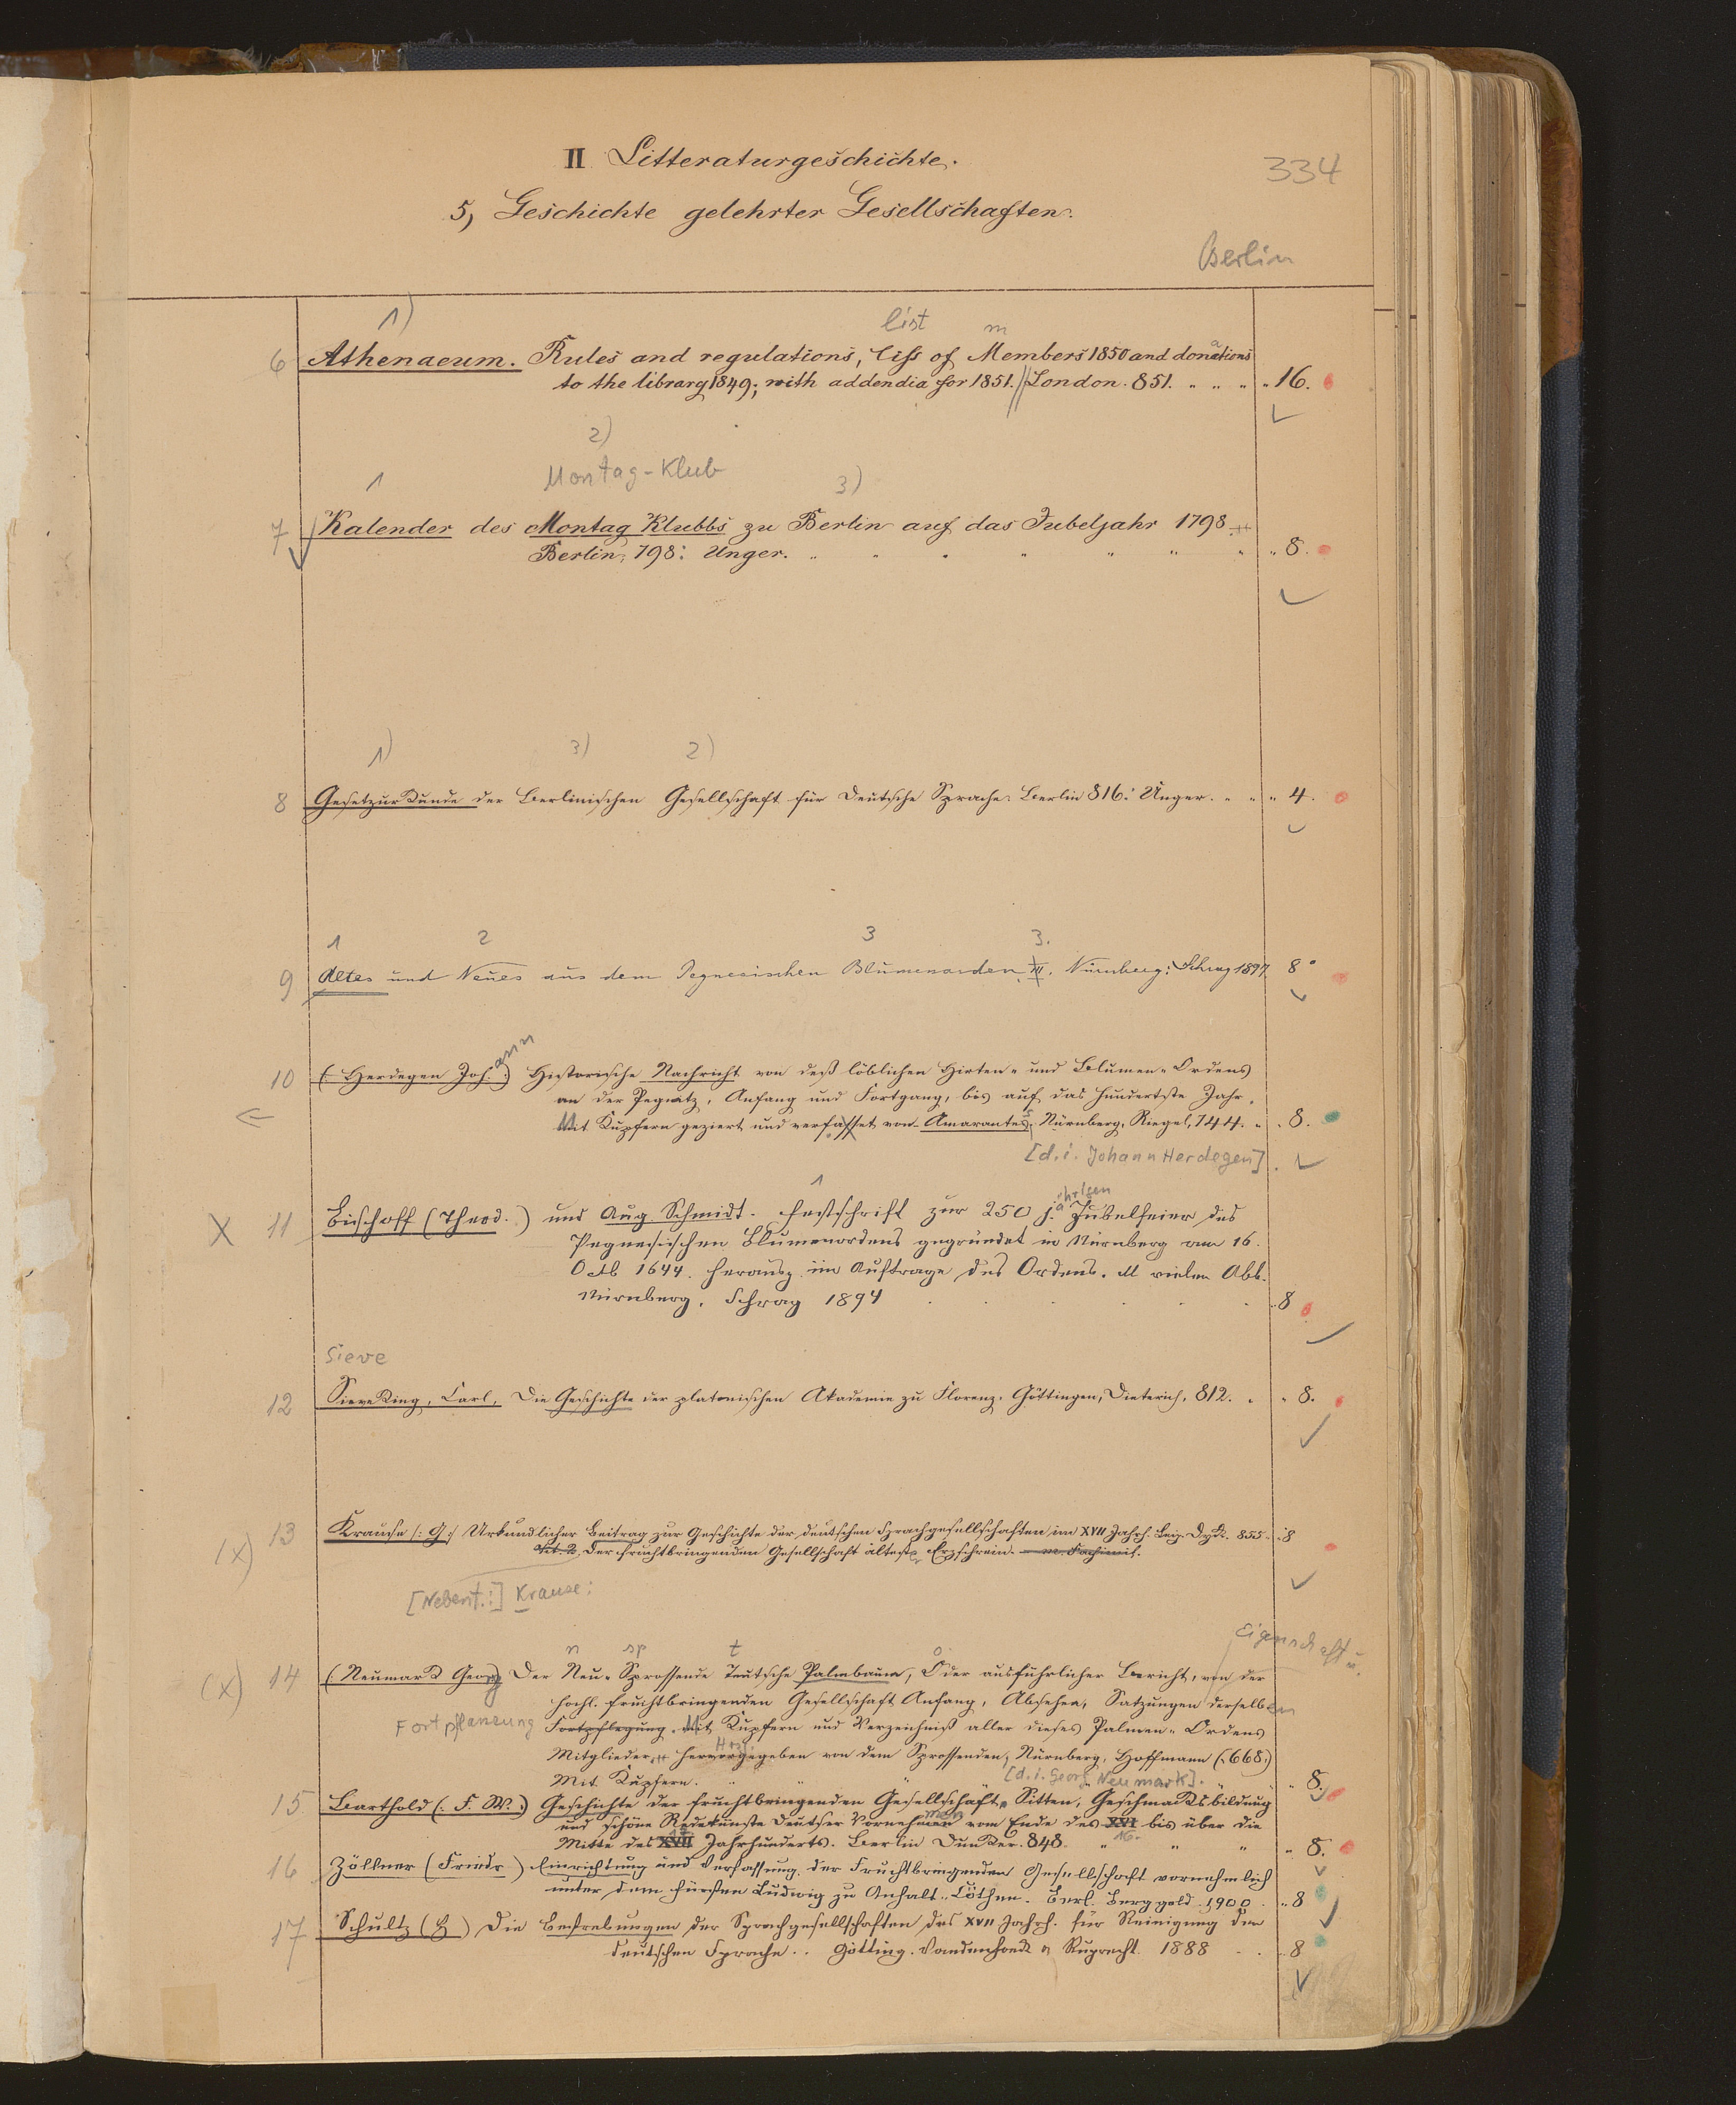 II Litteraturgeschichte.
334
5, Geschichte gelehrter Gesellschaften.
Berlin
1) list m
6 Athenaeum. Rules and regulations, liss of Members 1850 and donations
to the library 1849; with addendia for 1851. // London. 851. " " " " 16.
2)
Montag-Klub
1 3)
7 Kalender des Montag Klubbs zu Berlin auf das Jubeljahr 1798
Berlin, 798: Unger. " " " " " " " " 8.
1) 3) 2)
8 Gesetzurkunde der Berlinischen Gesellschaft für Deutsche Sprache. Berlin 816: Unger. " " " 4.
1 2 3 3.
9 Altes und Neues aus dem Pegnesischen Blumenorden. III. Nürnberg: Schrag 1897 8°
ann
10 (: Herdegen Joh. :) Historische Nachricht von deß löblichen Hirten- und Blumen-Ordens
an der Pegnitz, Anfang und Fortgang, bis auf das hundertste Jahr,
Mit Kupfern geziert und verfasset von Amarantes, Nürnberg, Riegel, 744. " . 8.
[d. i. Johann Herdegen]
1 ährigen
X 11 Bischoff (Theod.) und Aug. Schmidt. Festschrift zur 250 j. Jubelfeier des
Pegnesischen Blumenordens gegründet in Nürnberg am 16.
Octb 1644. herausg. im Auftrage des Ordens. M vielen Abb.
Nürnberg, Schrag 1894 8
Sieve
12 Sieveking, Carl, Die Geschichte der platonischen Akademie zu Florenz. Göttingen, Dieterich, 812. " " 8.
(x) 13 Krause (: G:) Urkundlicher Beitrag zur Geschichte der deutschen Sprachgesellschaften im XVII Jahrh. Leip. Dyk. 855. 8
Tit. 2. Der fruchtbringenden Gesellschaft ältester Erzschrein. m. Facsimil.
[Nebent.:] Krause:
n sp t o Eigenschaft u.
(x) 14 (Neumark Georg) Der Neu-Sprossende Teutsche Palmbaum, Oder ausführlicher Bericht, von der
hochl. fruchtbringenden Gesellschaft Anfang, Absehen, Satzungen derselben
Fortpflanzung Fortpflegung. Mit Kupfern und Verzeichniß aller dieses Palmen-Ordens
Mitglieder, hervorgegeben von dem Sprossenden, Nürnberg, Hoffmann (:668:)
Mit Kupfern. " " [d. i. Georg Neumark]. " 8.
15 Barthold (: F. W. :) Geschichte der fruchtbringenden Gesellschaft. Sitten, Geschmacksbildung
und schöne Redekünste Deutscher Vornehmen vom Ende des XVI bis über die
Mitte des XVII Jahrhunderts. Berlin Duncker. 848. 16. " " " 8.
16 Zöllner (Friedr) Einrichtung und Verfassung der Fruchtbringenden Gesellschaft vornehmlich
unter dem Fürsten Ludwig zu Anhalt-Cöthen. Berl. Berggold. 1900. " 8
17 Schultz (H) Die Bestrebungen der Sprachgesellschaften des XVII Jahrh. für Reinigung der
deutschen Sprache. . Götting. Vandenhoeck u Ruprecht. 1888 . . 8